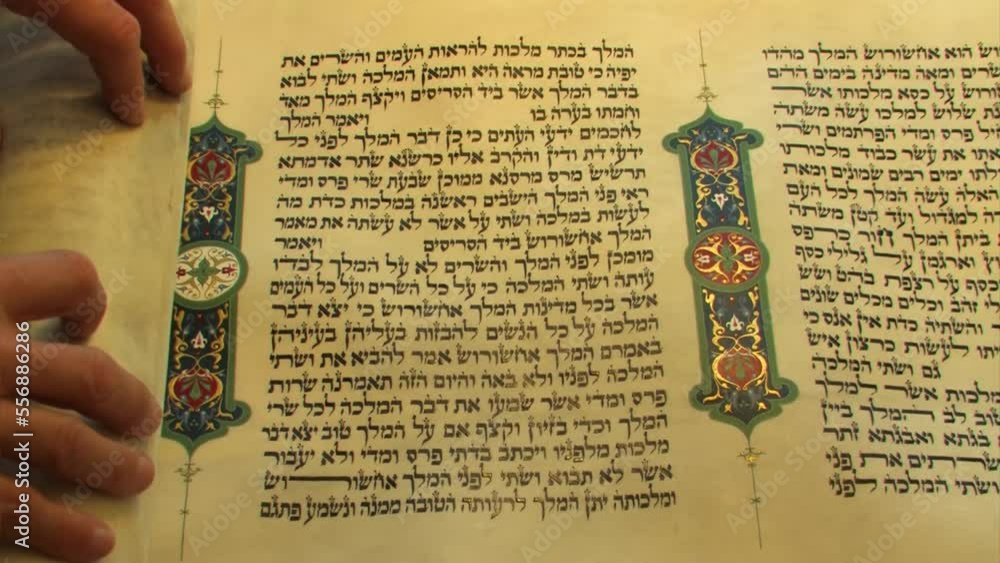 וש הוא אחשורוש המלך מהדו
שרים ומאה מדינה בימים ההם
ורוש על כסא מלכותו אשר
ת שלוש למלכו עשה משתה
יל פרס ומדי הפרתמים ושרי
אתו את עשר כבוד מלכותו
לתו ימים רבים שמונים ומאת
האלה עשה המלך לכל העם
ה למגדול ועד קטן משתה
ביתן המלך חור כרפס
ץ וארגמן על גלילי כסף
כסף על רצפת בהט ושש
לי זהב וכלים מכלים שונים
והשתיה כדת אין אנס כי
תו לעשות כרצון איש
גם ושתי המלכה
מלכות אשר למלך
טוב לב המלך ביין
בגתא ואבגתא זתר
שרתים את פני
ושתי המלכה לפני
המלך בכתר מלכות להראות העמים והשרים את
יפיה כי טובת מראה היא ותמאן המלכה ושתי לבוא
בדבר המלך אשר ביד הסריסים ויקצף המלך מאד
וחמתו בערה בו ויאמר המלך
לחכמים ידעי העתים כי כן דבר המלך לפני כל
ידעי דת ודין והקרב אליו כרשנא שתר אדמתא
תרשיש מרס מרסנא ממוכן שבעת שרי פרס ומדי
ראי פני המלך הישבים ראשנה במלכות כדת מה
לעשות במלכה ושתי על אשר לא עשתה את מאמר
המלך אחשורוש ביד הסריסים ויאמר
מומכן לפני המלך והשרים לא על המלך לבדו
עותה ושתי המלכה כי על כל השרים ועל כל העמים
אשר בכל מדינות המלך אחשורוש כי יצא דבר
המלכה על כל הנשים להבזות בעליהן בעיניהן
באמרם המלך אחשורוש אמר להביא את ושתי
המלכה לפניו ולא באה והיום הזה תאמרנה שרות
פרס ומדי אשר שמעו את דבר המלכה לכל שרי
המלך וכדי בזיון וקצף אם על המלך טוב יצא דבר
מלכות מלפניו ויכתב בדתי פרס ומדי ולא יעבור
אשר לא תבוא ושתי לפני המלך אחשורוש
ומלכותה יתן המלך לרעותה הטובה ממנה ונשמע פתגם
Adobe Stock | #556886286